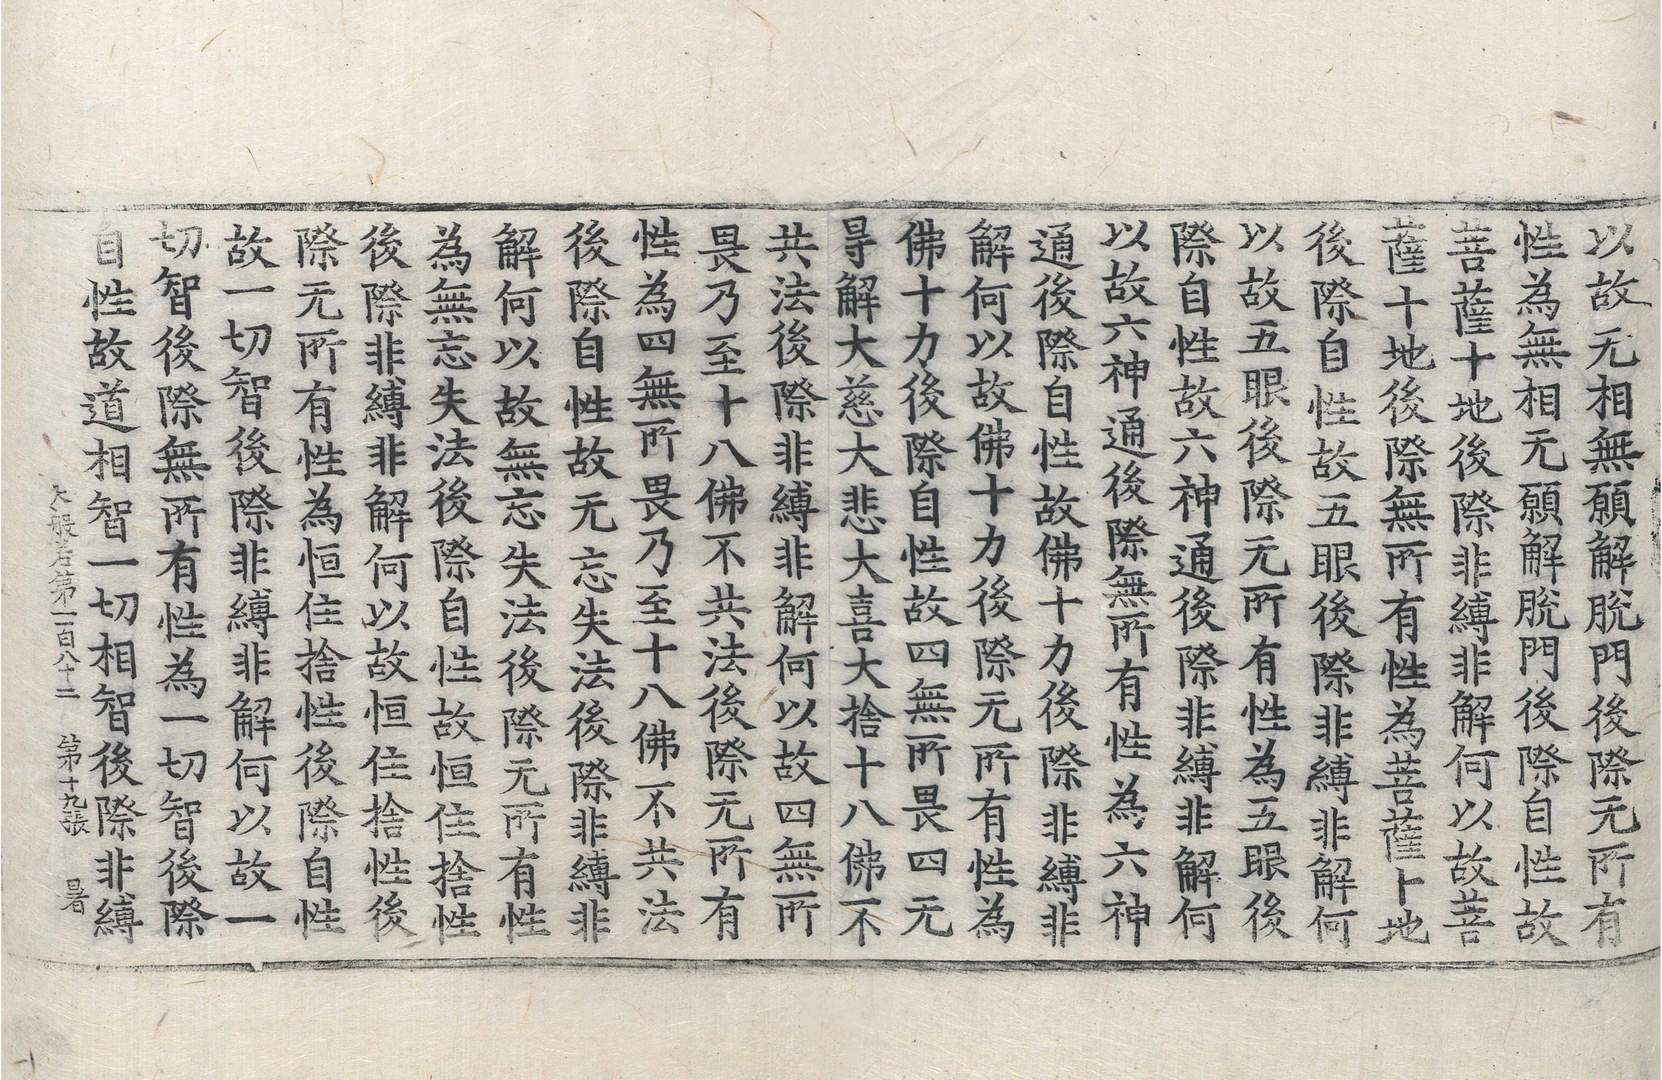 以故无相無願解脫門後際无所有
性為無相无願解脫門後際自性故
菩薩十地後際非縛非解何以故菩
薩十地後際無所有性為菩薩十地
後際自性故五眼後際非縛非解何
以故五眼後際无所有性為五眼後
際自性故六神通後際非縛非解何
以故六神通後際無所有性為六神
通後際自性故佛十力後際非縛非
解何以故佛十力後際无所有性為
佛十力後際自性故四無所畏四无
㝵解大慈大悲大喜大捨十八佛不
共法後際非縛非解何以故四無所
畏乃至十八佛不共法後際无所有
性為四無所畏乃至十八佛不共法
後際自性故无忘失法後際非縛非
解何以故無忘失法後際无所有性
為無忘失法後際自性故恒住捨性
後際非縛非解何以故恒住捨性後
際无所有性為恒住捨性後際自性
故一切智後際非縛非解何以故一
切智後際無所有性為一切智後際
自性故道相智一切相智後際非縛
大般若第一百八十二 第十九張 暑